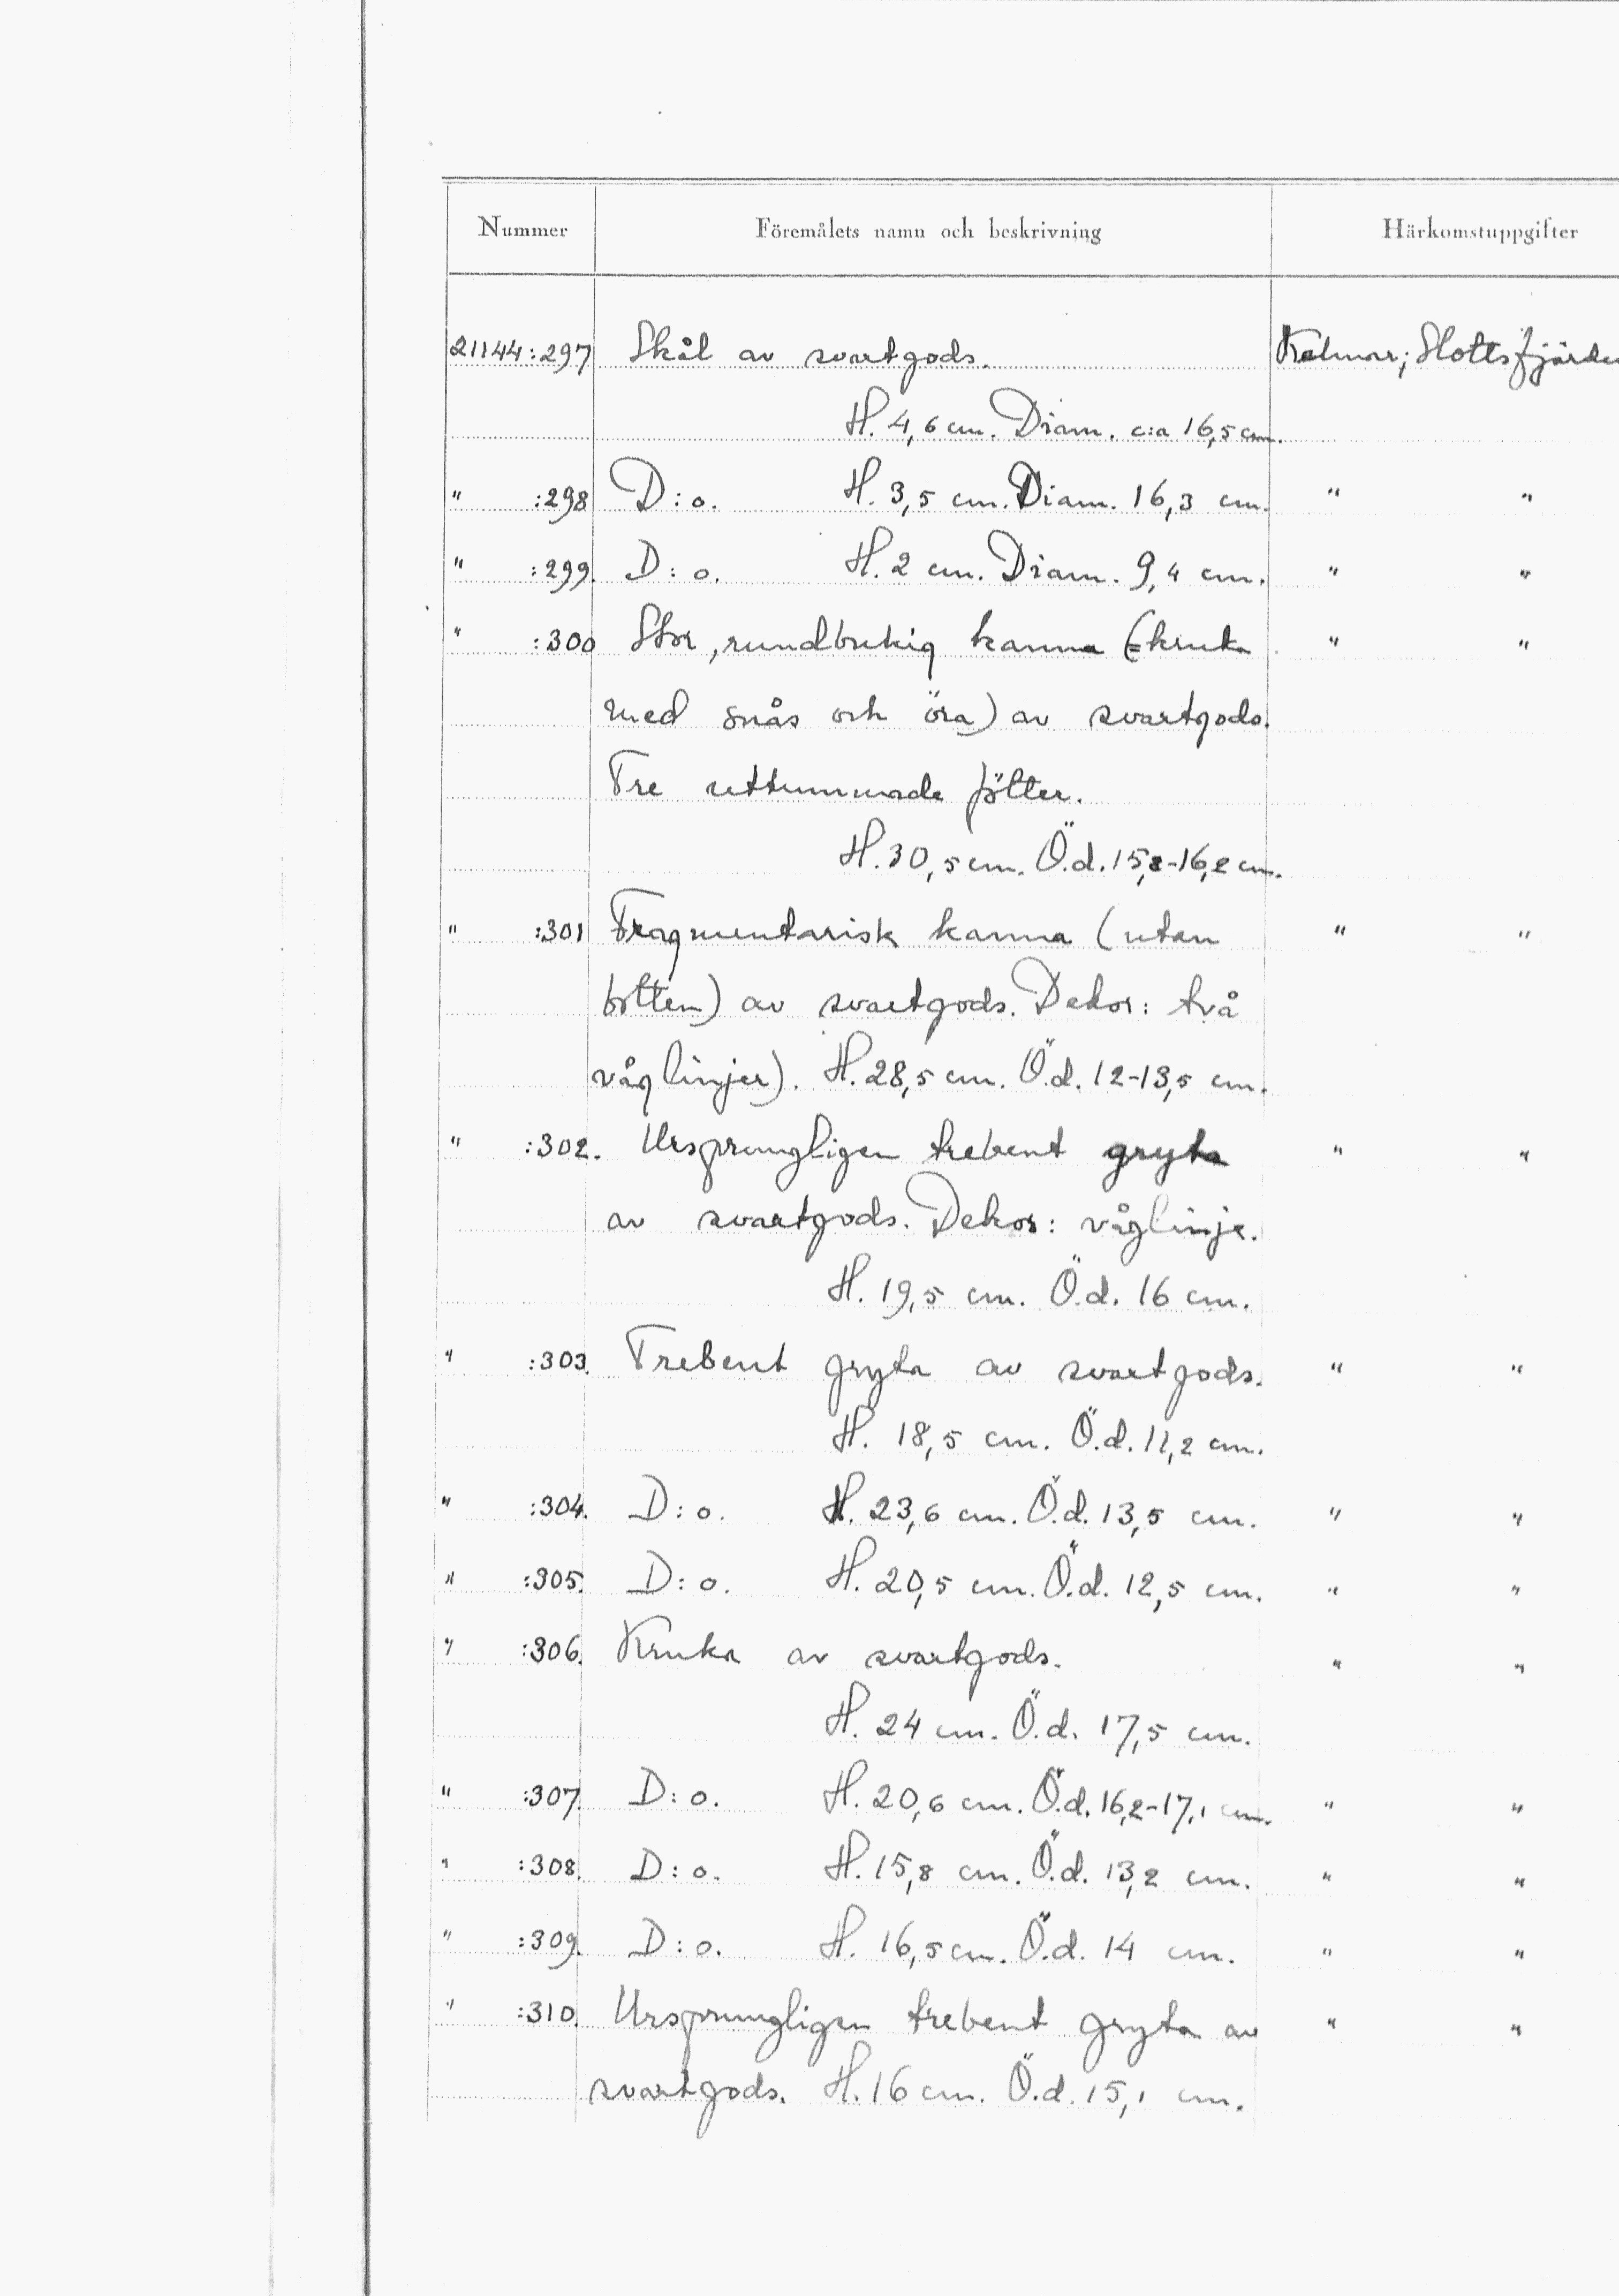 Nummer Föremålets namn och beskrivning Härkomstuppgifter
21144:297 Skål av svartgods. Kalmar; Slottsfjärden
H. 4,6 cm. Diam. c:a 16,5 cm.
" :298 D:o. H. 3,5 cm. Diam. 16,3 cm. " "
" :299. D:o. H. 2 cm. Diam. 9,4 cm. " "
" :300 Stor, rundbukig kanna (=kruka " "
med snås och öra) av svartgods.
Tre uttummade fötter.
H. 30,5 cm. Ö.d. 15,8-16,2 cm.
" :301 Fragmentarisk kanna (utan " "
botten) av svartgods. Dekor: två
våglinjer). H. 28,5 cm. Ö.d. 12-13,5 cm.
" :302. Ursprungligen trebent gryta " "
av svartgods. Dekor: våglinje.
H. 19,5 cm. Ö.d. 16 cm.
" :303. Trebent gryta av svartgods. " "
H. 18,5 cm. Ö.d. 11,2 cm.
" :304. D:o. H. 23,6 cm. Ö.d. 13,5 cm. " "
" :305. D:o. H. 20,5 cm. Ö.d. 12,5 cm. " "
" :306. Kruka av svartgods. " "
H. 24 cm. Ö.d. 17,5 cm.
" :307. D:o. H. 20,6 cm. Ö.d. 16,2-17,1 cm. " "
" :308. D:o. H. 15,8 cm. Ö.d. 13,2 cm. " "
" :309. D:o. H. 16,5 cm. Ö.d. 14 cm. " "
" :310. Ursprungligen trebent gryta av " "
svartgods. H. 16 cm. Ö.d. 15,1 cm.